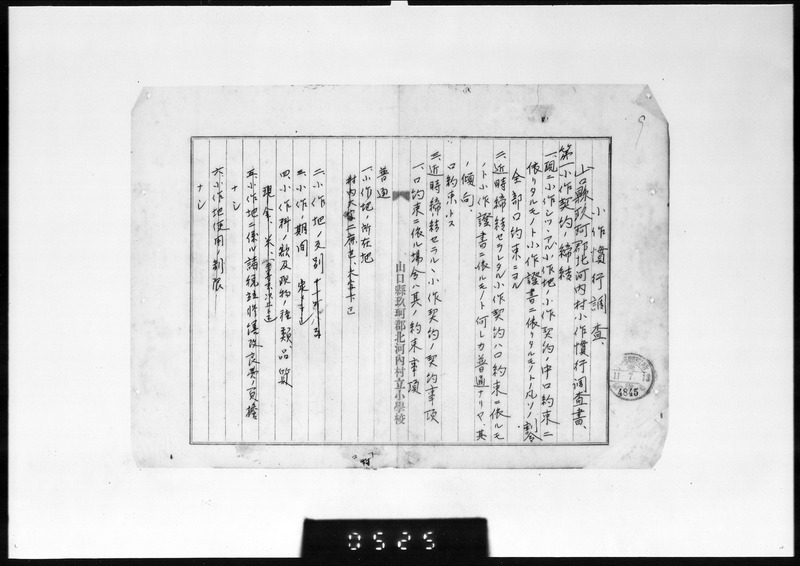 小作慣行調査、
山口縣玖珂郡北河内村小作慣行調査書、
第一小作契約ノ締結
一、現ニ小作シツヽアル小作地ノ小作契約ノ中口約束ニ
依リタルモノト小作證書ニ依リタルモノトノ凡ソノ割合
全部口約束ニヨル
二、近時締結セラレタル小作契約ハ口約束ニ依ルモ
ノト小作證書ニ依ルモノト何レカ普通ナリヤ、其
ノ傾向、
口約束トス
三、近時締結セラルヽ小作契約ノ契約事項
1、口約束ニ依ル場合ハ其ノ約束事項
山口縣玖珂郡北河内村立小學校
普通
一、小作地ノ所在地
村内大字
二、小作地ノ反別
三、小作ノ期間 定メナシ
四、小作料ノ額及取物ノ種類、品質
現金、米、
五、小作地ニ係ル諸税並修繕改良費ノ負擔
ナシ
六、小作地使用ノ制限
ナシ
11.7.
4845
0525